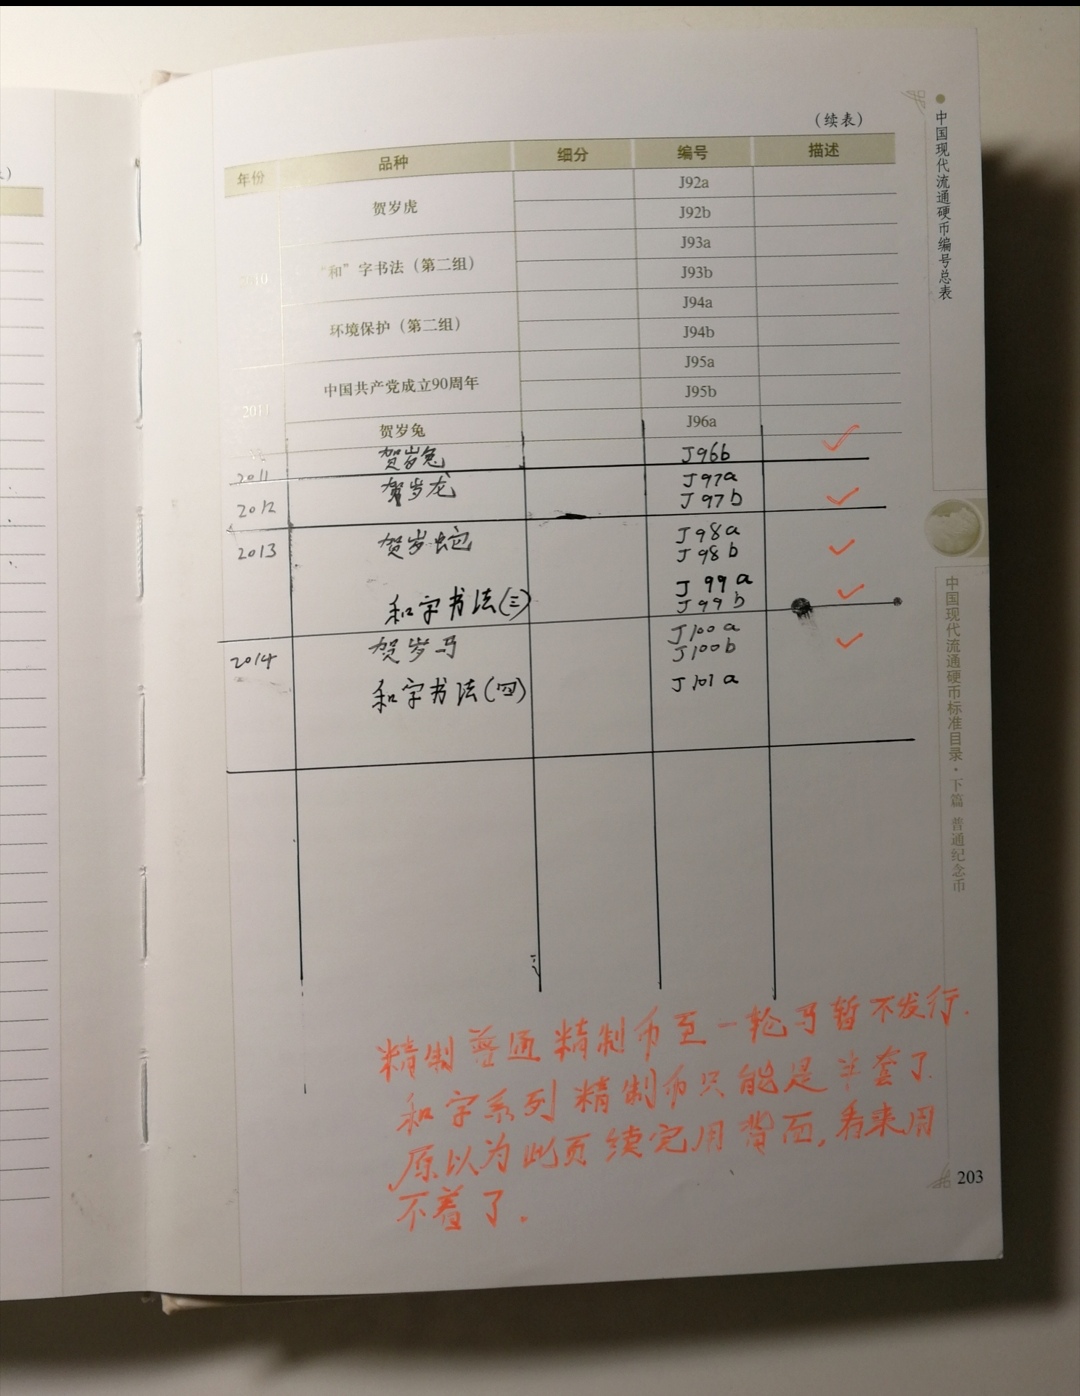 （续表）
年份 品种 细分 编号 描述
贺岁虎 J92a
J92b
2010 “和”字书法（第二组） J93a
J93b
环境保护（第二组） J94a
J94b
2011 中国共产党成立90周年 J95a
J95b
贺岁兔 J96a
2011 贺岁兔 J96b ✓
2012 贺岁龙 J97a
J97b ✓
2013 贺岁蛇 J98a
J98b ✓
和字书法(三) J99a
J99b ✓
2014 贺岁马 J100a
J100b ✓
和字书法(四) J101a
精制普通精制币至一轮马暂不发行.
和字系列精制币只能是半套了.
原以为此页续完用背面,看来用
不着了.
203
中国现代流通硬币编号总表
中国现代流通硬币标准目录·下篇 普通纪念币